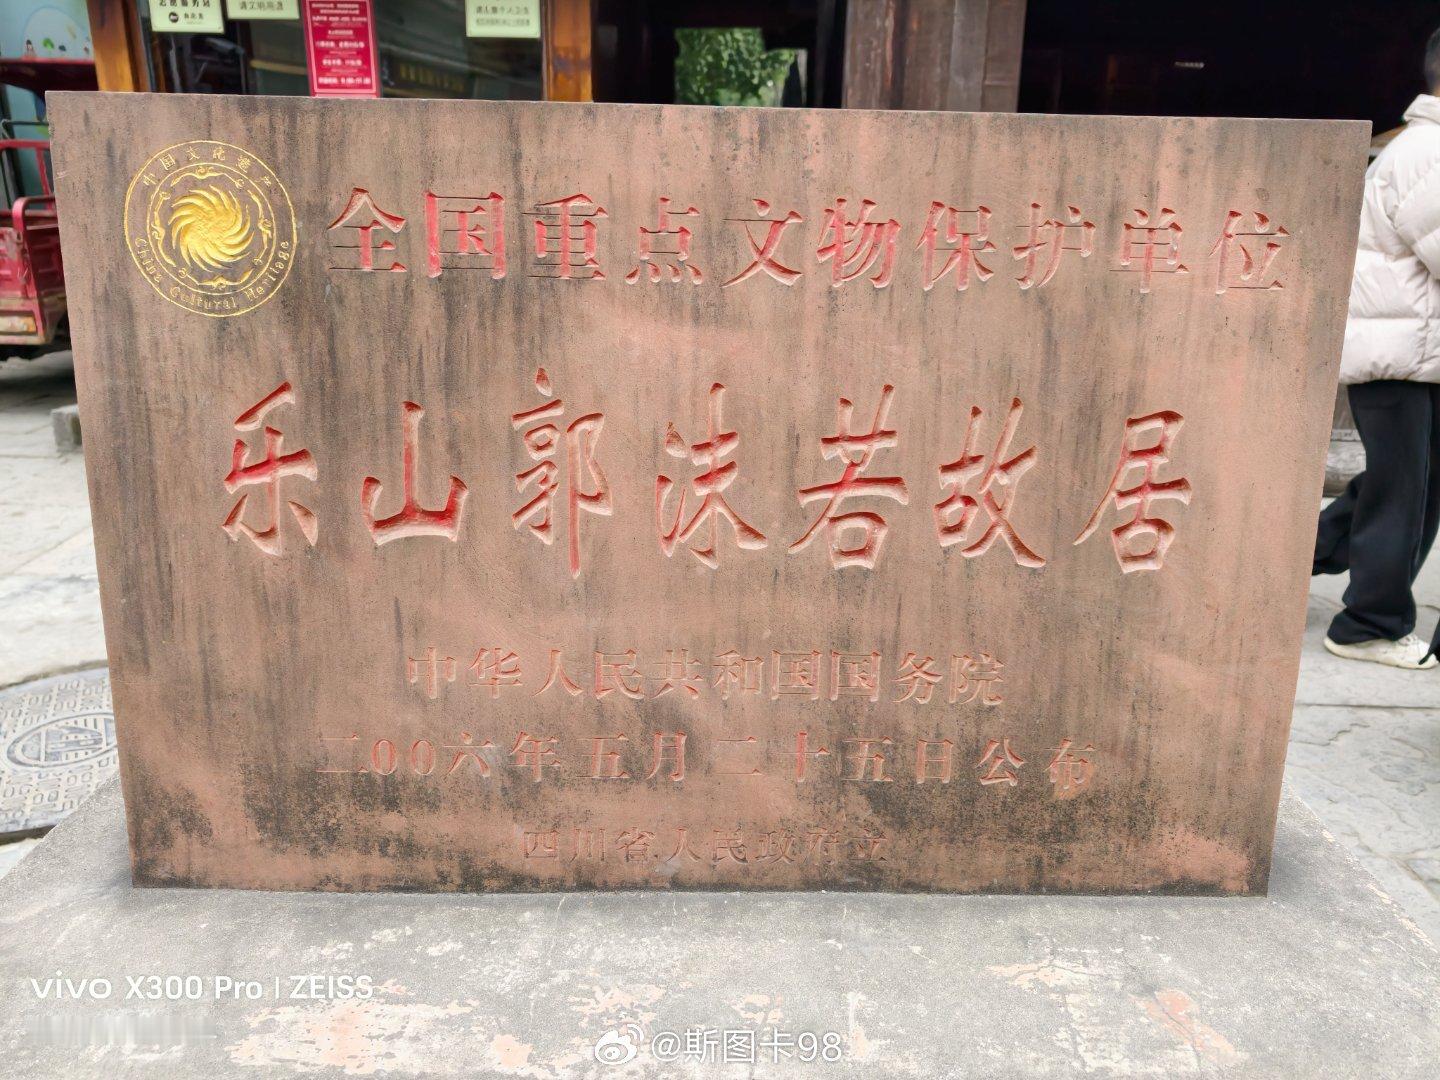 中国文化遗产
China Cultural Heritage
全国重点文物保护单位
乐山郭沫若故居
中华人民共和国国务院
二00六年五月二十五日公布
四川省人民政府立
vivo X300 Pro | ZEISS
@斯图卡98